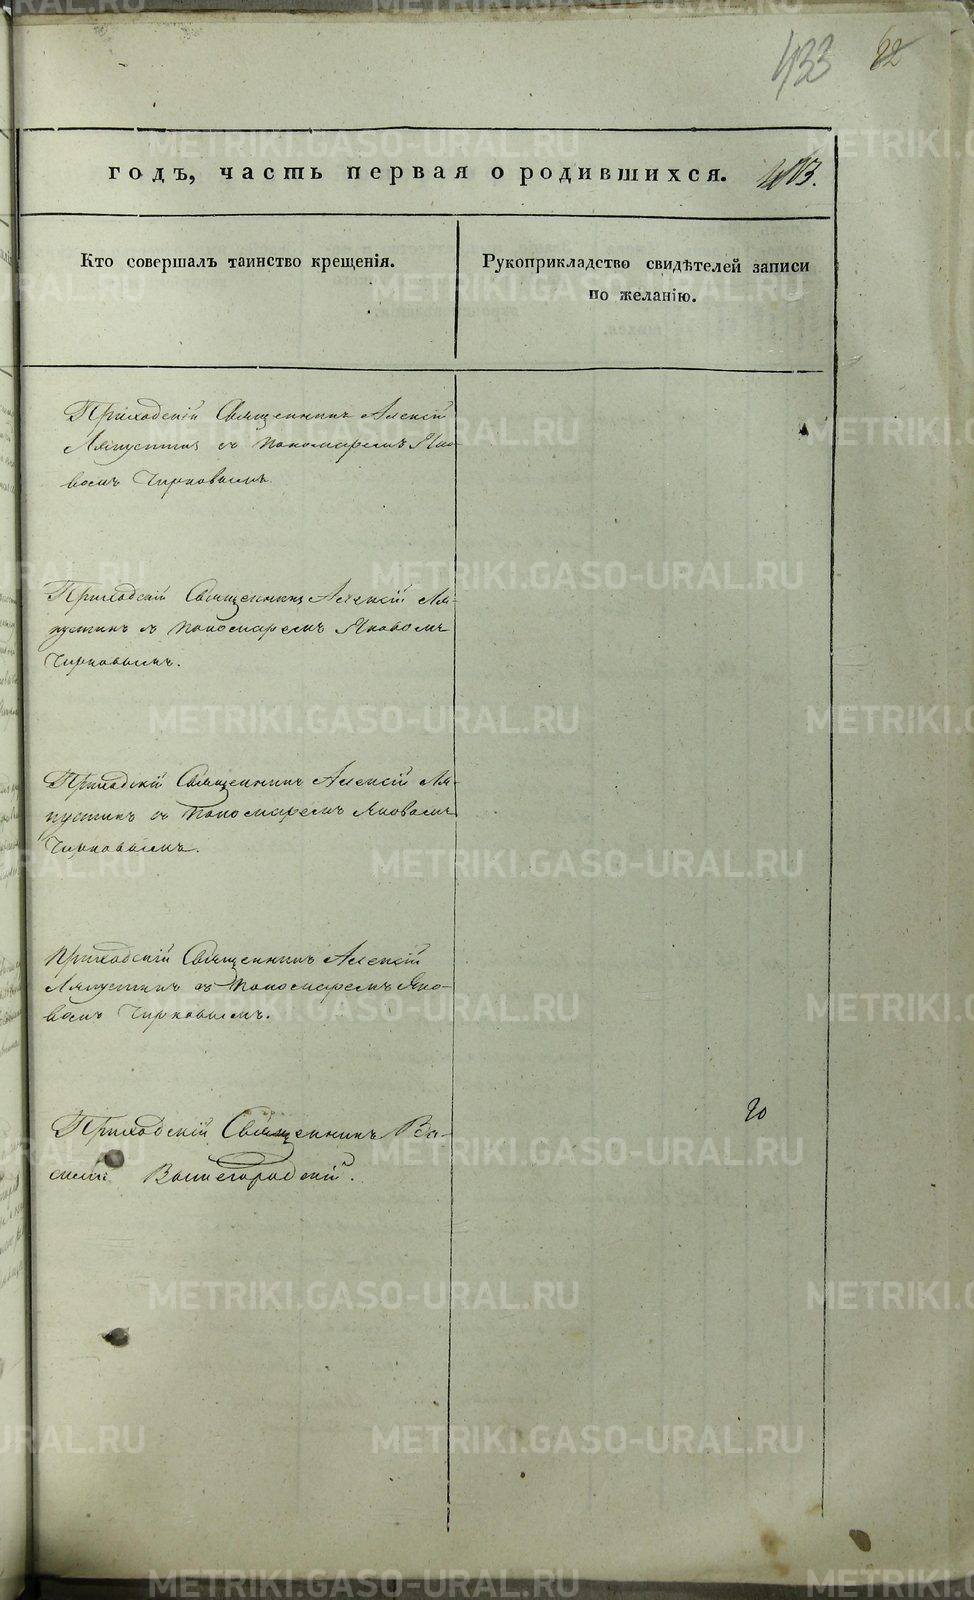 433 62
годъ, часть первая о родившихся. 403.
Кто совершалъ таинство крещенія.
Рукоприкладство свидѣтелей записи
по желанію.
Приходскій Священникъ Алексій
Ляпустинъ съ пономаремъ Яко-
вомъ Чирковымъ.
Приходскій Священникъ Алексій Ля-
пустинъ съ пономаремъ Яковомъ
Чирковымъ.
Приходскій Священникъ Алексій Ля-
пустинъ съ пономаремъ Яковомъ
Чирковымъ.
Приходскій Священникъ Алексій
Ляпустинъ съ пономаремъ Яко-
вомъ Чирковымъ.
Приходскій Священникъ Ва-
силій Вышегородскій.
METRIKI.GASO-URAL.RU